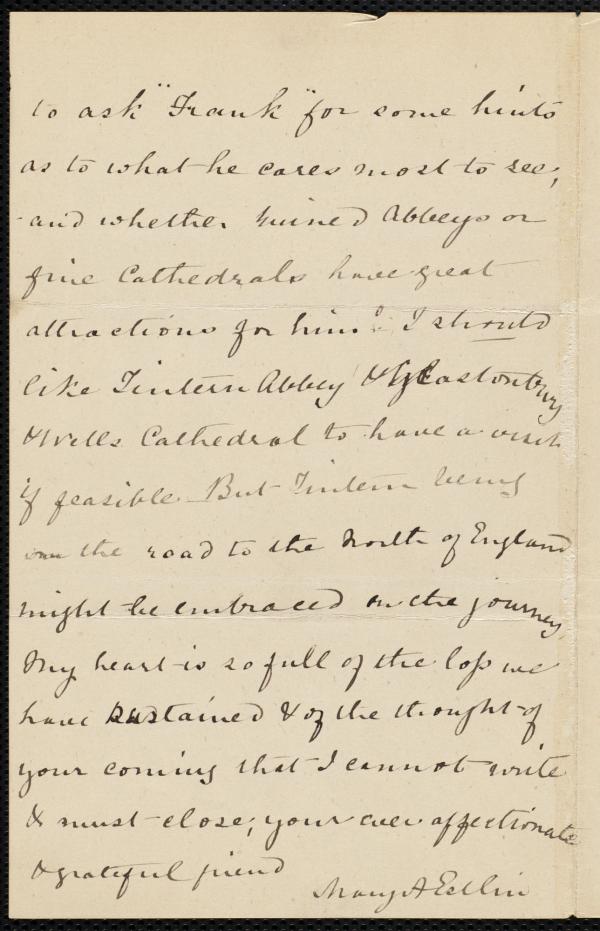 to ask "Frank" for some hints
as to what he cares most to see,
and whether ruined Abbeys or
fine Cathedrals have great
attractions for him? I should
like Tintern Abbey & Glastonbury
& Wells Cathedral to have a visit
if feasible. But Tintern being
on the road to the North of England
might be embraced on the journey
My heart is so full of the loss we
have sustained & of the thought of
your coming that I cannot write
& must close, your ever affectionate
& grateful friend
Mary A Estlin